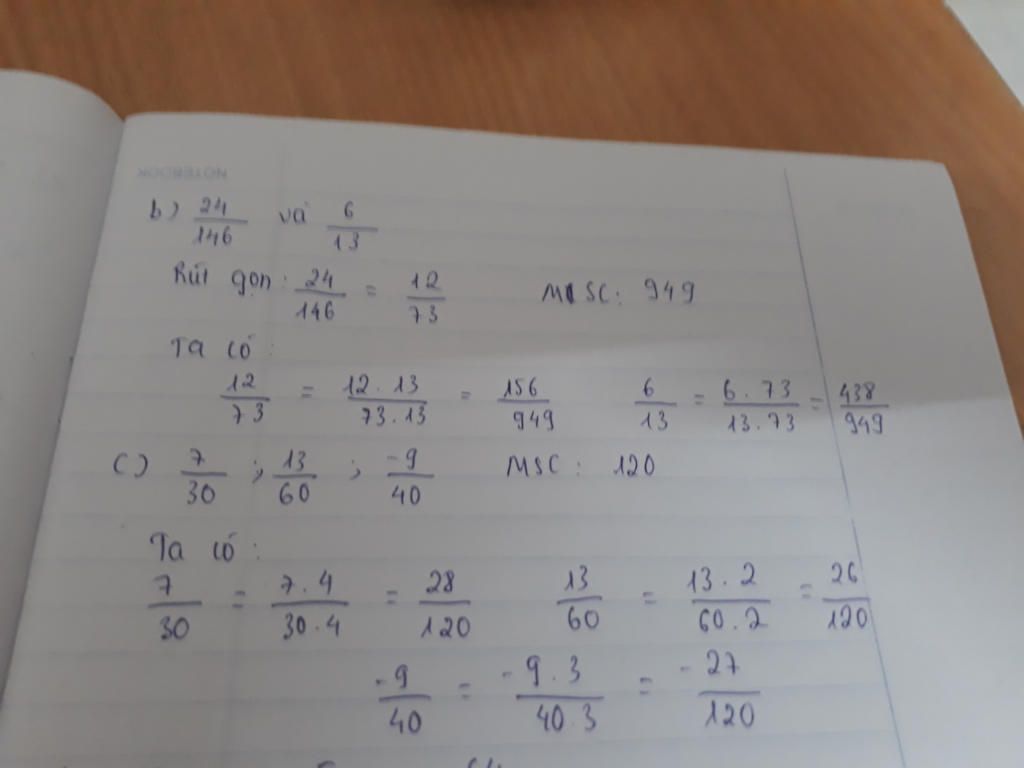 NOTEBOOK
b) 24/146 và 6/13
Rút gọn: 24/146 = 12/73 MSC: 949
Ta có:
12/73 = 12.13/73.13 = 156/949 6/13 = 6.73/13.73 = 438/949
c) 7/30 ; 13/60 ; -9/40 MSC: 120
Ta có:
7/30 = 7.4/30.4 = 28/120 13/60 = 13.2/60.2 = 26/120
-9/40 = -9.3/40.3 = -27/120